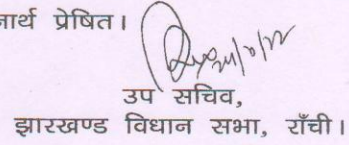 प्रेषित।
उप सचिव,
झारखण्ड विधान सभा, राँची।